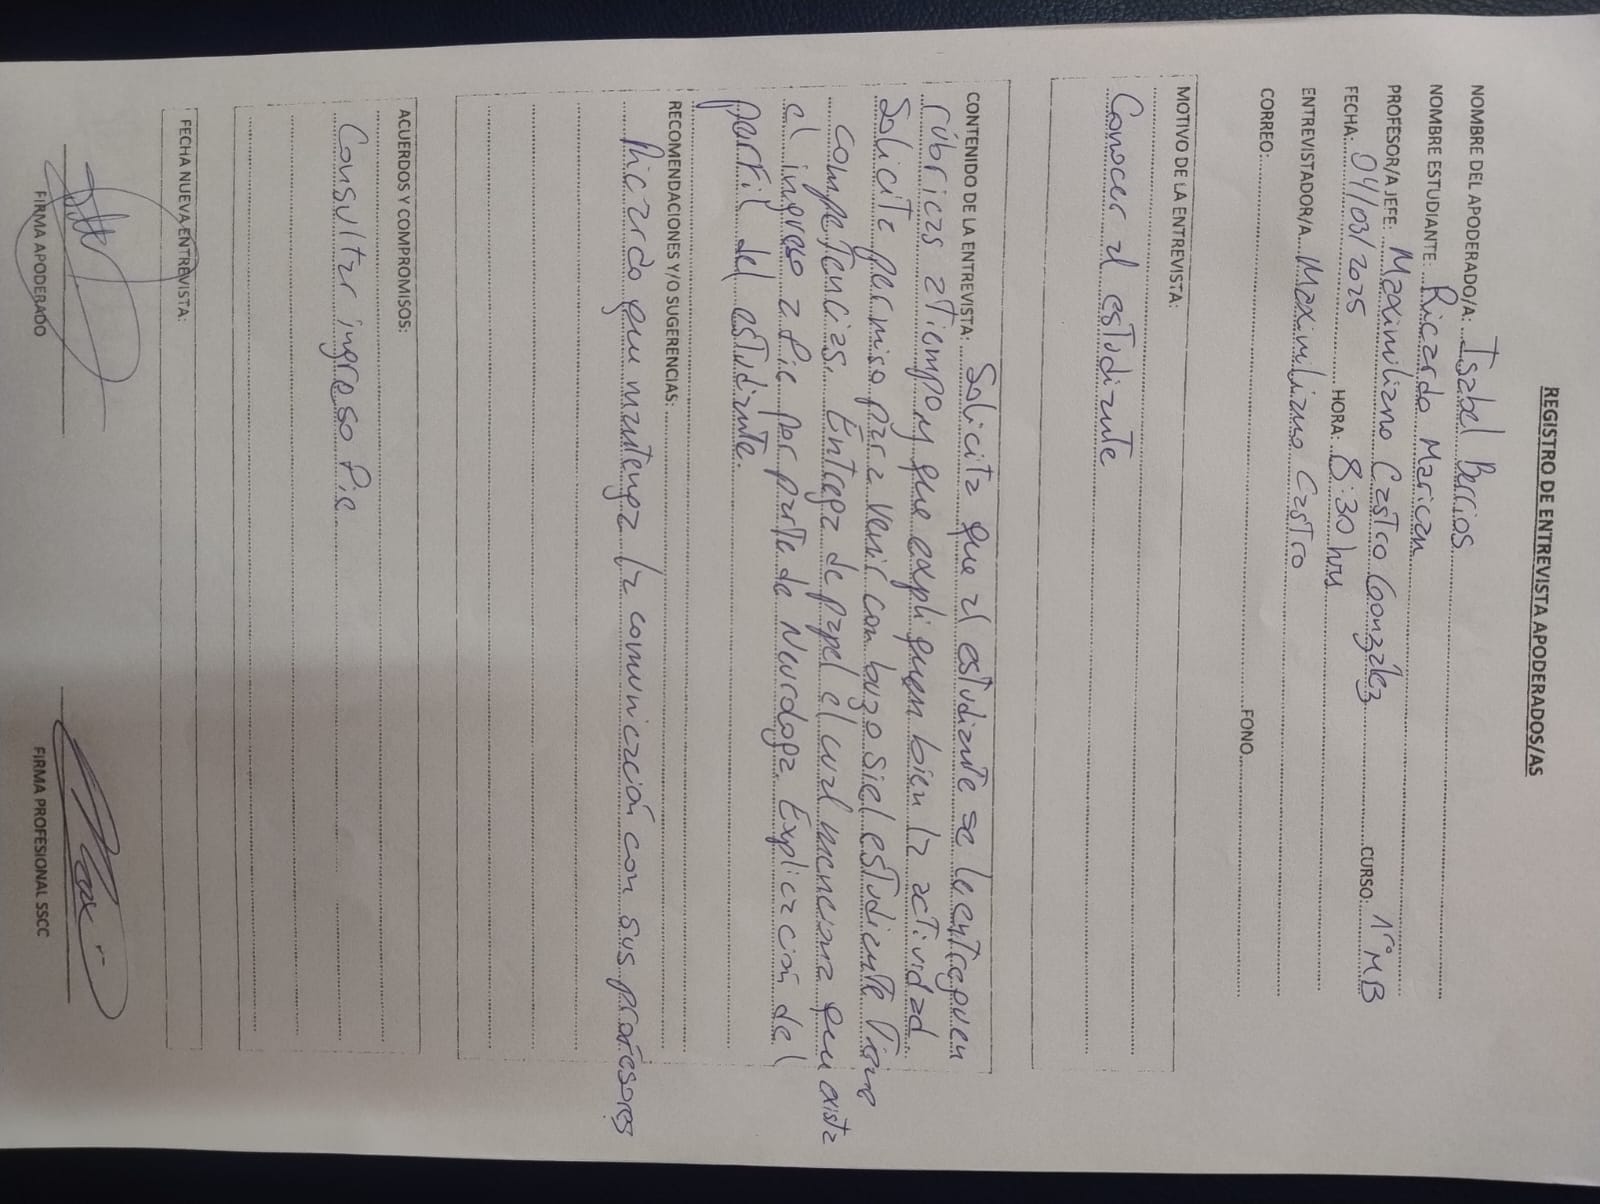 REGISTRO DE ENTREVISTA APODERADOS/AS
NOMBRE DEL APODERADO/A: Isabel Berrios
NOMBRE ESTUDIANTE: Ricardo Marican
PROFESOR/A JEFE: Maximiliano Castro González CURSO: 1°M.B
FECHA: 04/03/2025 HORA: 8:30 hrs
ENTREVISTADOR/A Maximiliano Castro
CORREO: FONO
MOTIVO DE LA ENTREVISTA:
Conocer al estudiante
CONTENIDO DE LA ENTREVISTA: Solicita que al estudiante se le entreguen
rúbricas a tiempo y que expliquen bien la actividad.
Solicita permiso para venir con buzo si el estudiante tiene
competencias. Entrega de papel el cual menciona que exista
el ingreso a Pie por parte de Neurologa. Explicación del
perfil del estudiante.
RECOMENDACIONES Y/O SUGERENCIAS:
Ricardo que mantenga la comunicación con sus profesores
ACUERDOS Y COMPROMISOS:
Consultar ingreso Pie
FECHA NUEVA ENTREVISTA:
FIRMA APODERADO FIRMA PROFESIONAL SSCC